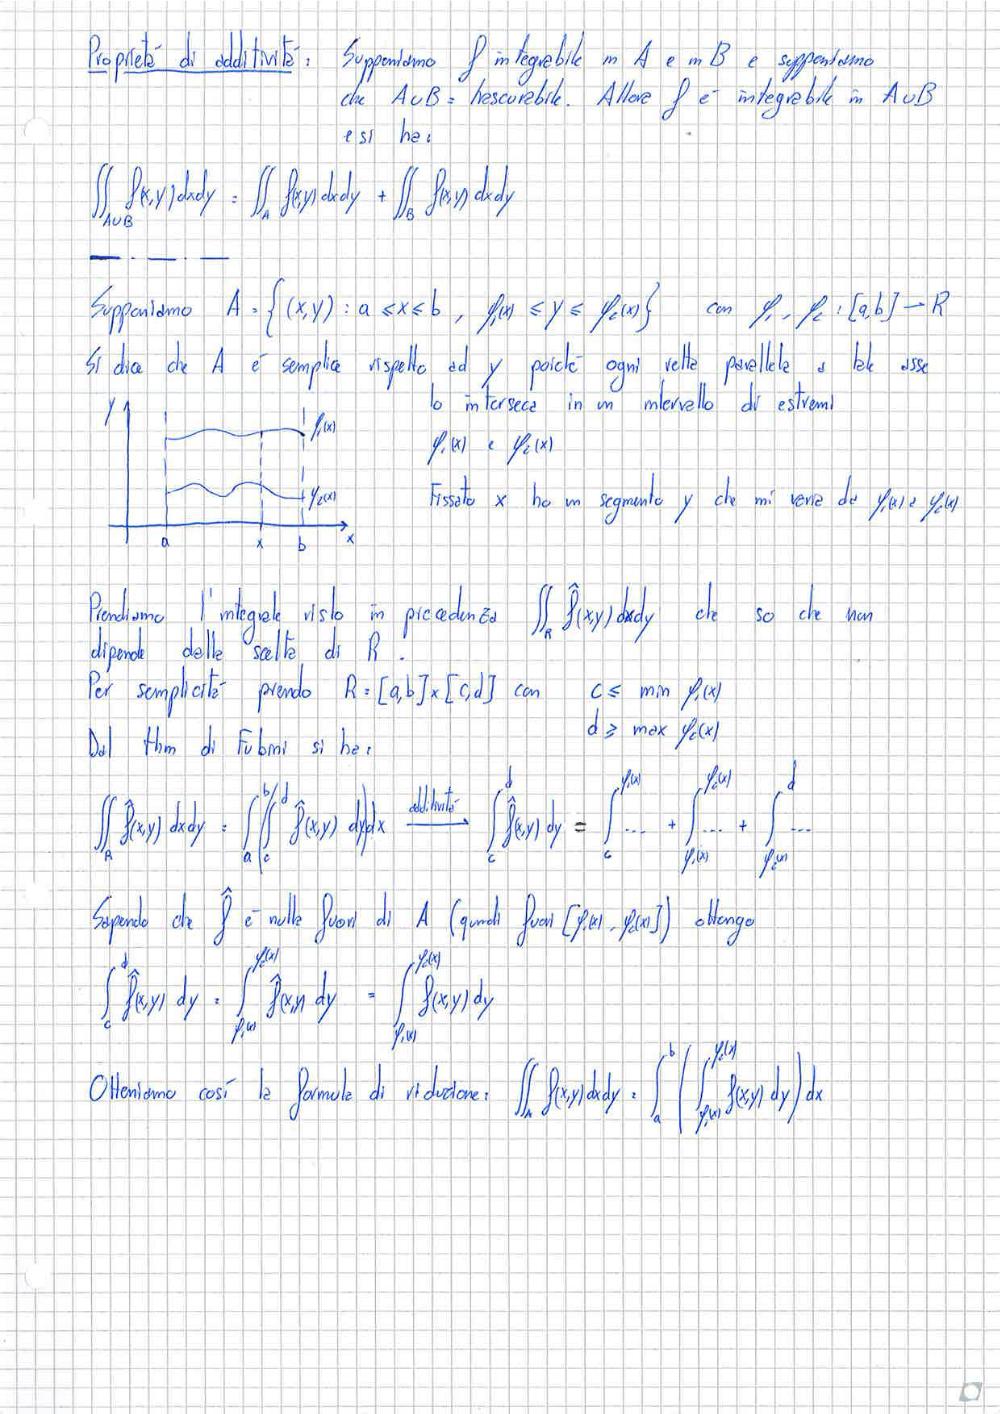 Proprietà di additività: Supponiamo f integrabile in A e in B e supponiamo
che A∪B = misurabile. Allora f è integrabile in A∪B
e si ha:
∬_{A∪B} f(x,y) dxdy = ∬_A f(x,y) dxdy + ∬_B f(x,y) dxdy
Supponiamo A = {(x,y) : a ≤ x ≤ b , φ₁(x) ≤ y ≤ φ₂(x)} con φ₁, φ₂ : [a,b] → R
Si dice che A è semplice rispetto ad y poiché ogni retta parallela a tale asse
lo interseca in un intervallo di estremi
φ₁(x) e φ₂(x)
Fissato x ho un segmento y che mi varia da φ₁(x) a φ₂(x)
y φ₁(x)
φ₂(x)
a x b x
Prendiamo l'integrale visto in precedenza ∬_R f̂(x,y) dxdy che so che non
dipende dalla scelta di R.
Per semplicità prendo R = [a,b] × [c,d] con c ≤ min φ₁(x)
d ≥ max φ₂(x)
Dal thm di Fubini si ha:
∬_R f̂(x,y) dxdy = ∫_a^b (∫_c^d f̂(x,y) dy) dx additività → ∫_c^d f̂(x,y) dy = ∫_c^{φ₁(x)} ... + ∫_{φ₁(x)}^{φ₂(x)} ... + ∫_{φ₂(x)}^d ...
Sapendo che f̂ è nulla fuori di A (quindi fuori [φ₁(x), φ₂(x)]) ottengo
∫_c^d f̂(x,y) dy = ∫_{φ₁(x)}^{φ₂(x)} f̂(x,y) dy = ∫_{φ₁(x)}^{φ₂(x)} f(x,y) dy
Otteniamo così la formula di riduzione: ∬_A f(x,y) dxdy = ∫_a^b (∫_{φ₁(x)}^{φ₂(x)} f(x,y) dy) dx